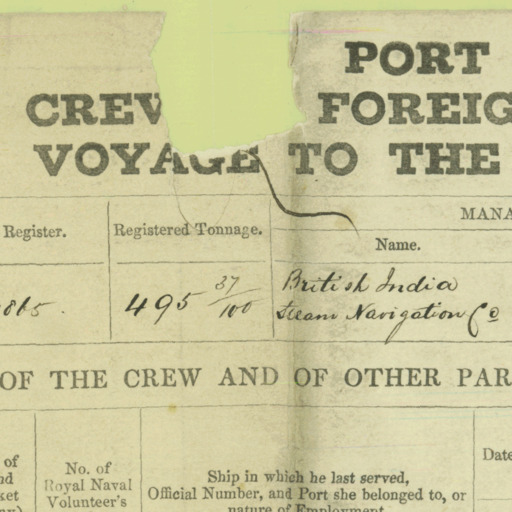 PORT
CREW FOREIG
VOYAGE TO THE
Register. Registered Tonnage. MANA
Name.
495 37/100 British India
Steam Navigation Co
OF THE CREW AND OF OTHER PAR
of No. of Date
nd Royal Naval Ship in which he last served,
ket Volunteer's Official Number, and Port she belonged to, or
nature of Employment